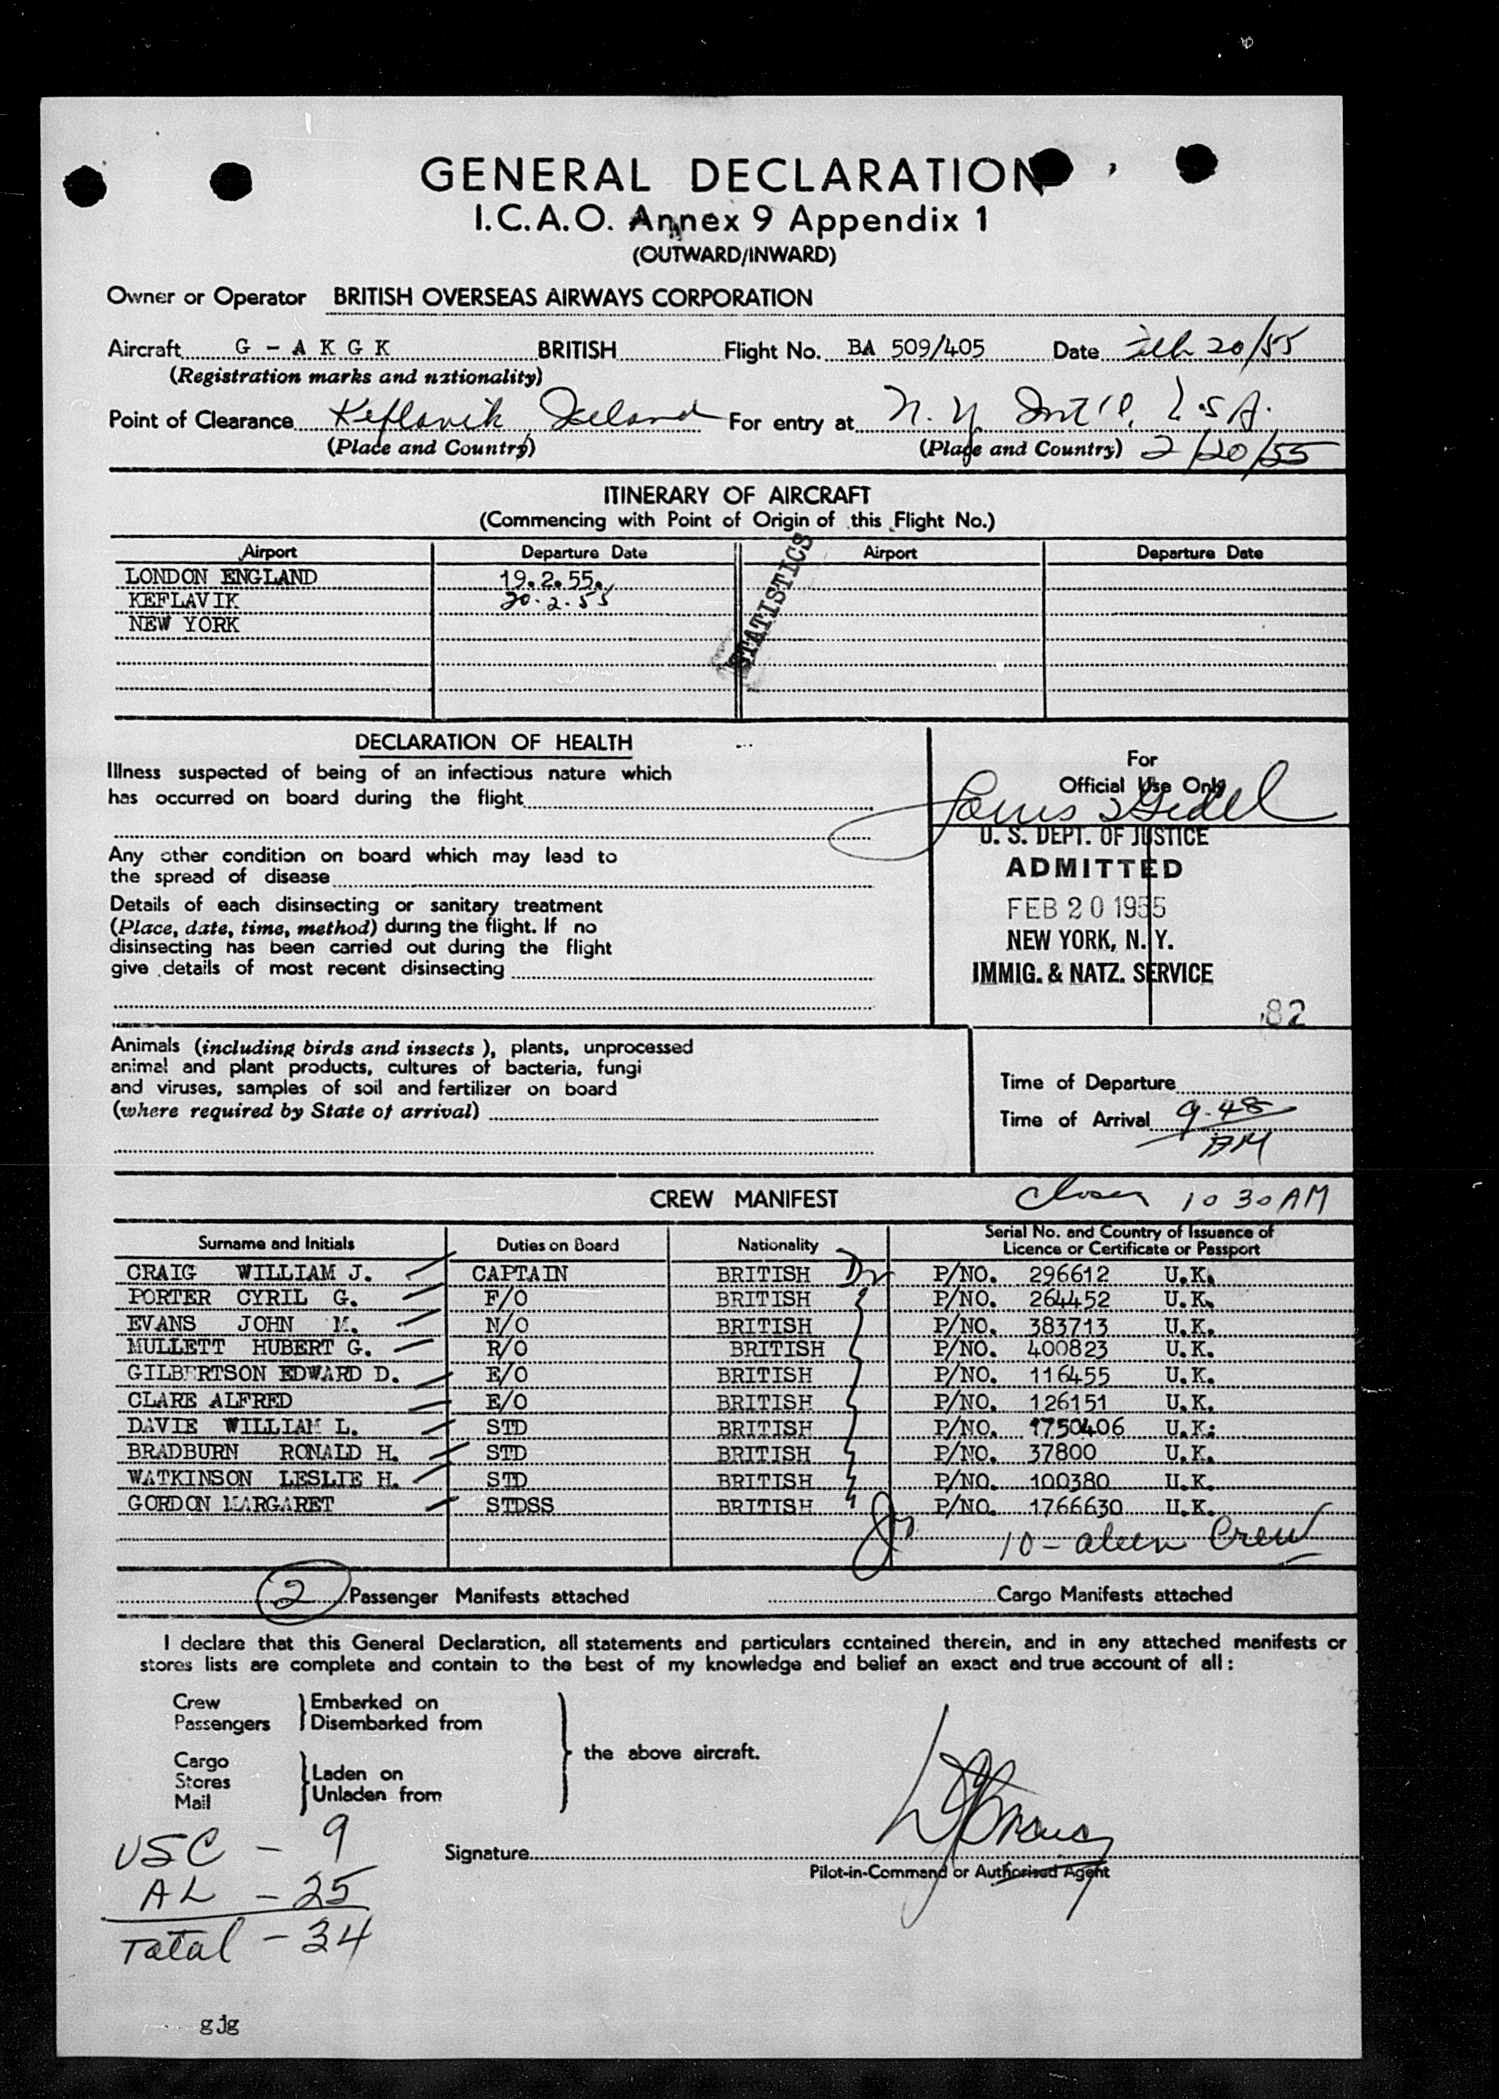 GENERAL DECLARATION
I.C.A.O. Annex 9 Appendix 1
(OUTWARD/INWARD)
Owner or Operator BRITISH OVERSEAS AIRWAYS CORPORATION
Aircraft G - A K G K BRITISH Flight No. BA 509/405 Date Feb 20/55
(Registration marks and nationality)
Point of Clearance Keflavik Iceland For entry at N.Y. Int'l, U.S.A.
(Place and Country) (Place and Country) 2/20/55
ITINERARY OF AIRCRAFT
(Commencing with Point of Origin of this Flight No.)
Airport Departure Date Airport Departure Date
LONDON ENGLAND 19.2.55.
KEFLAVIK 20.2.55
NEW YORK
STATISTICS
DECLARATION OF HEALTH
Illness suspected of being of an infectious nature which
has occurred on board during the flight
Any other condition on board which may lead to
the spread of disease
Details of each disinsecting or sanitary treatment
(Place, date, time, method) during the flight. If no
disinsecting has been carried out during the flight
give details of most recent disinsecting
For
Official Use Only
Louis
U. S. DEPT. OF JUSTICE
ADMITTED
FEB 20 1955
NEW YORK, N. Y.
IMMIG. & NATZ. SERVICE
82
Animals (including birds and insects), plants, unprocessed
animal and plant products, cultures of bacteria, fungi
and viruses, samples of soil and fertilizer on board
(where required by State of arrival)
Time of Departure
Time of Arrival 9.48
AM
CREW MANIFEST 10 30 AM
Surname and Initials Duties on Board Nationality Serial No. and Country of Issuance of
Licence or Certificate or Passport
CRAIG WILLIAM J. CAPTAIN BRITISH P/NO. 296612 U.K.
PORTER CYRIL G. F/O BRITISH P/NO. 264452 U.K.
EVANS JOHN M. N/O BRITISH P/NO. 383713 U.K.
MULLETT HUBERT G. R/O BRITISH P/NO. 400823 U.K.
GILBERTSON EDWARD D. E/O BRITISH P/NO. 116455 U.K.
CLARE ALFRED E/O BRITISH P/NO. 126151 U.K.
DAVIE WILLIAM L. STD BRITISH P/NO. 1750406 U.K.
BRADBURN RONALD H. STD BRITISH P/NO. 37800 U.K.
WATKINSON LESLIE H. STD BRITISH P/NO. 100380 U.K.
GORDON MARGARET STDSS BRITISH P/NO. 1766630 U.K.
10 - alien Crew
2 Passenger Manifests attached Cargo Manifests attached
I declare that this General Declaration, all statements and particulars contained therein, and in any attached manifests or
stores lists are complete and contain to the best of my knowledge and belief an exact and true account of all:
Crew Embarked on
Passengers Disembarked from
the above aircraft.
Cargo
Stores Laden on
Mail Unladen from
USC - 9
AL - 25
Total - 34
Signature
Pilot-in-Command or Authorised Agent
gjg